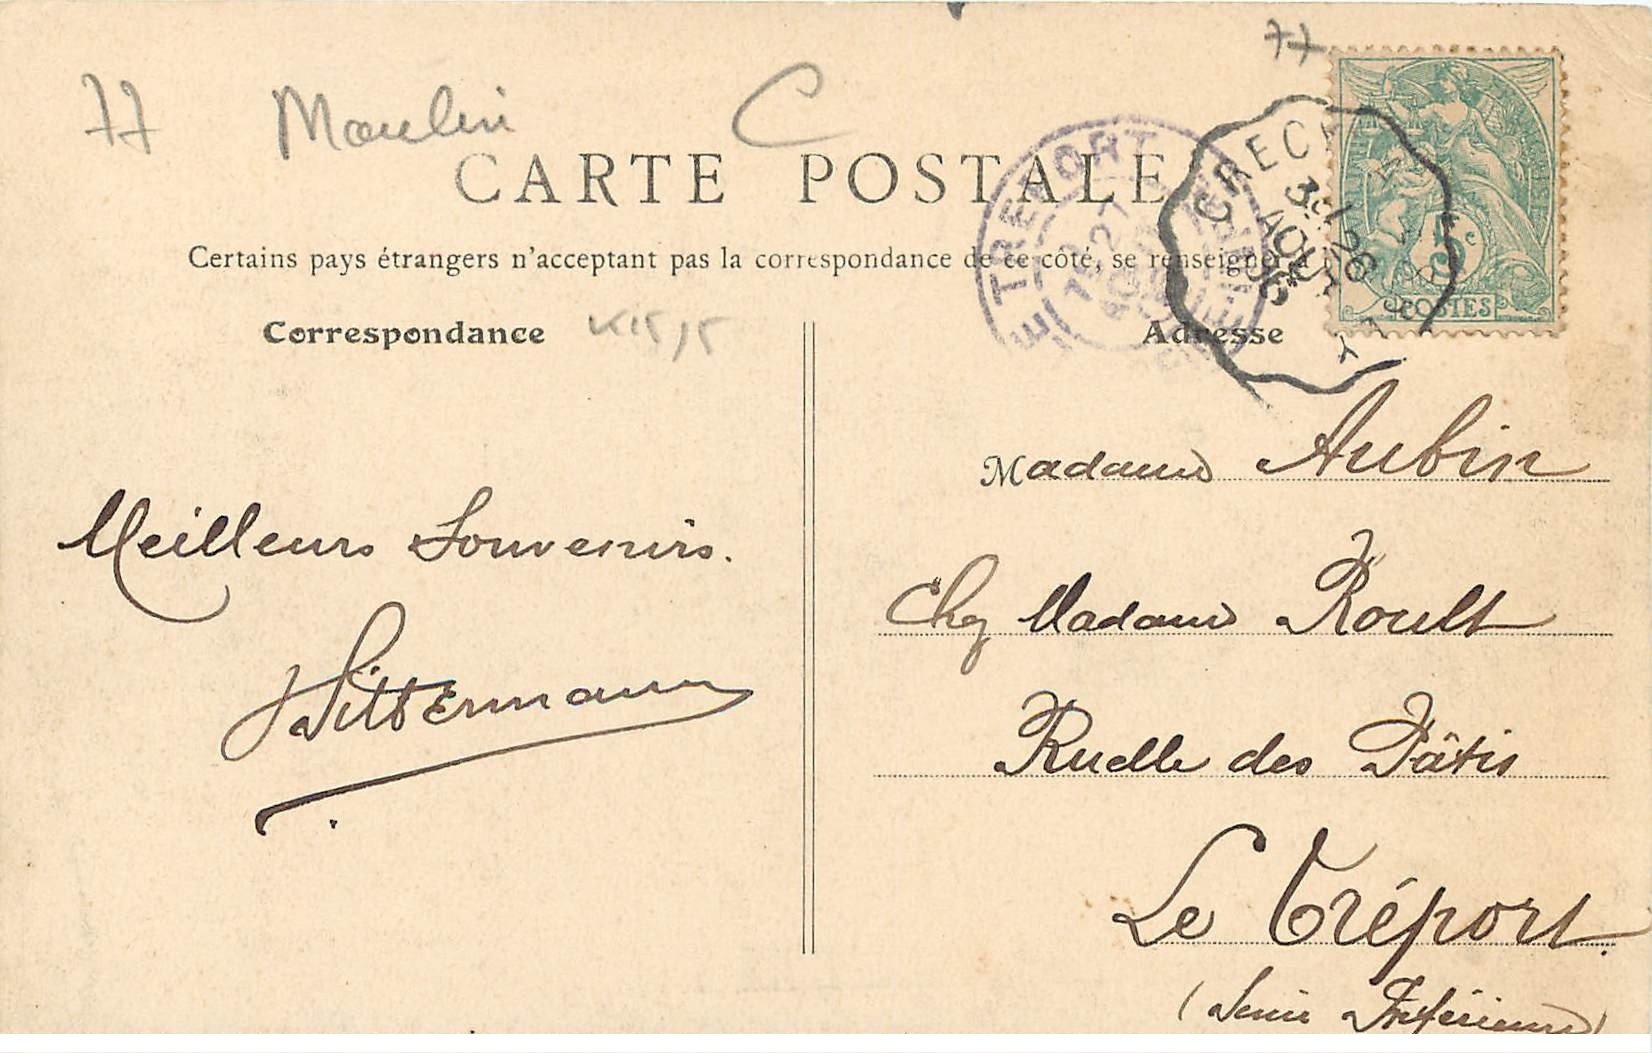 77
77 Moulin C
CARTE POSTALE
Certains pays étrangers n'acceptant pas la correspondance de ce côté, se renseigner à
Correspondance
Adresse
LE TREPORT
27
CRECY
3e
26
AOUT
06
5c
POSTES
Meilleurs Souvenirs.
Wittermann
Madame Aubin
Chez Madame Roult
Ruelle des Pâtis
Le Tréport.
(Seine Inférieure)